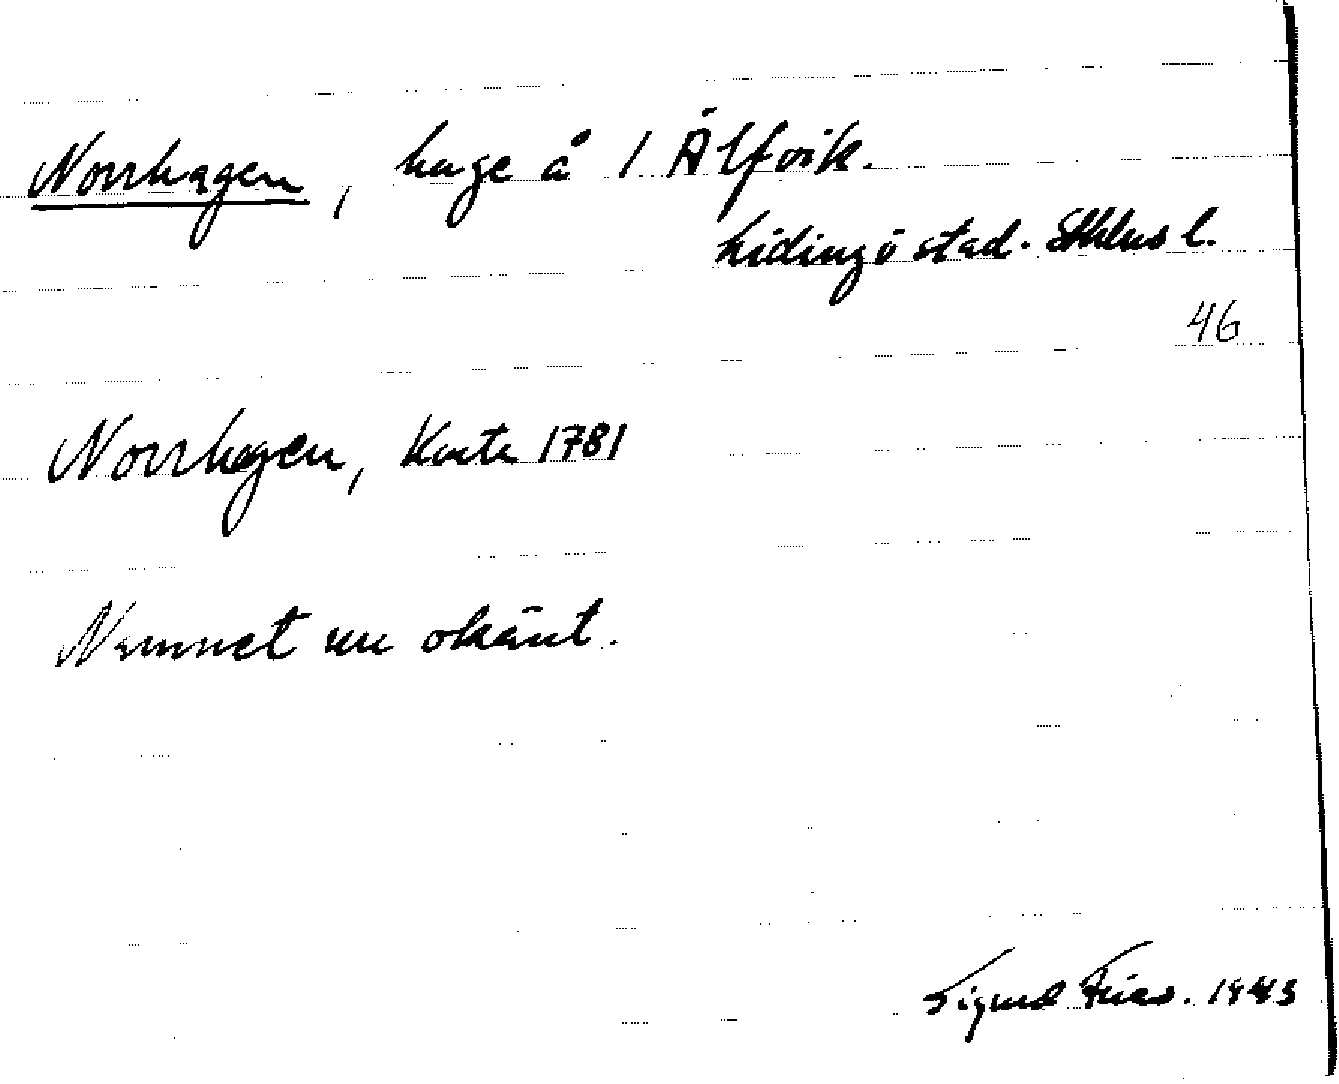 Norrhagen, hage å 1 Älfvik.
Lidingö stad. Sthlms l.
46
Norrhagen, Karta 1781
Namnet nu okänt.
Sigurd Fries. 1943